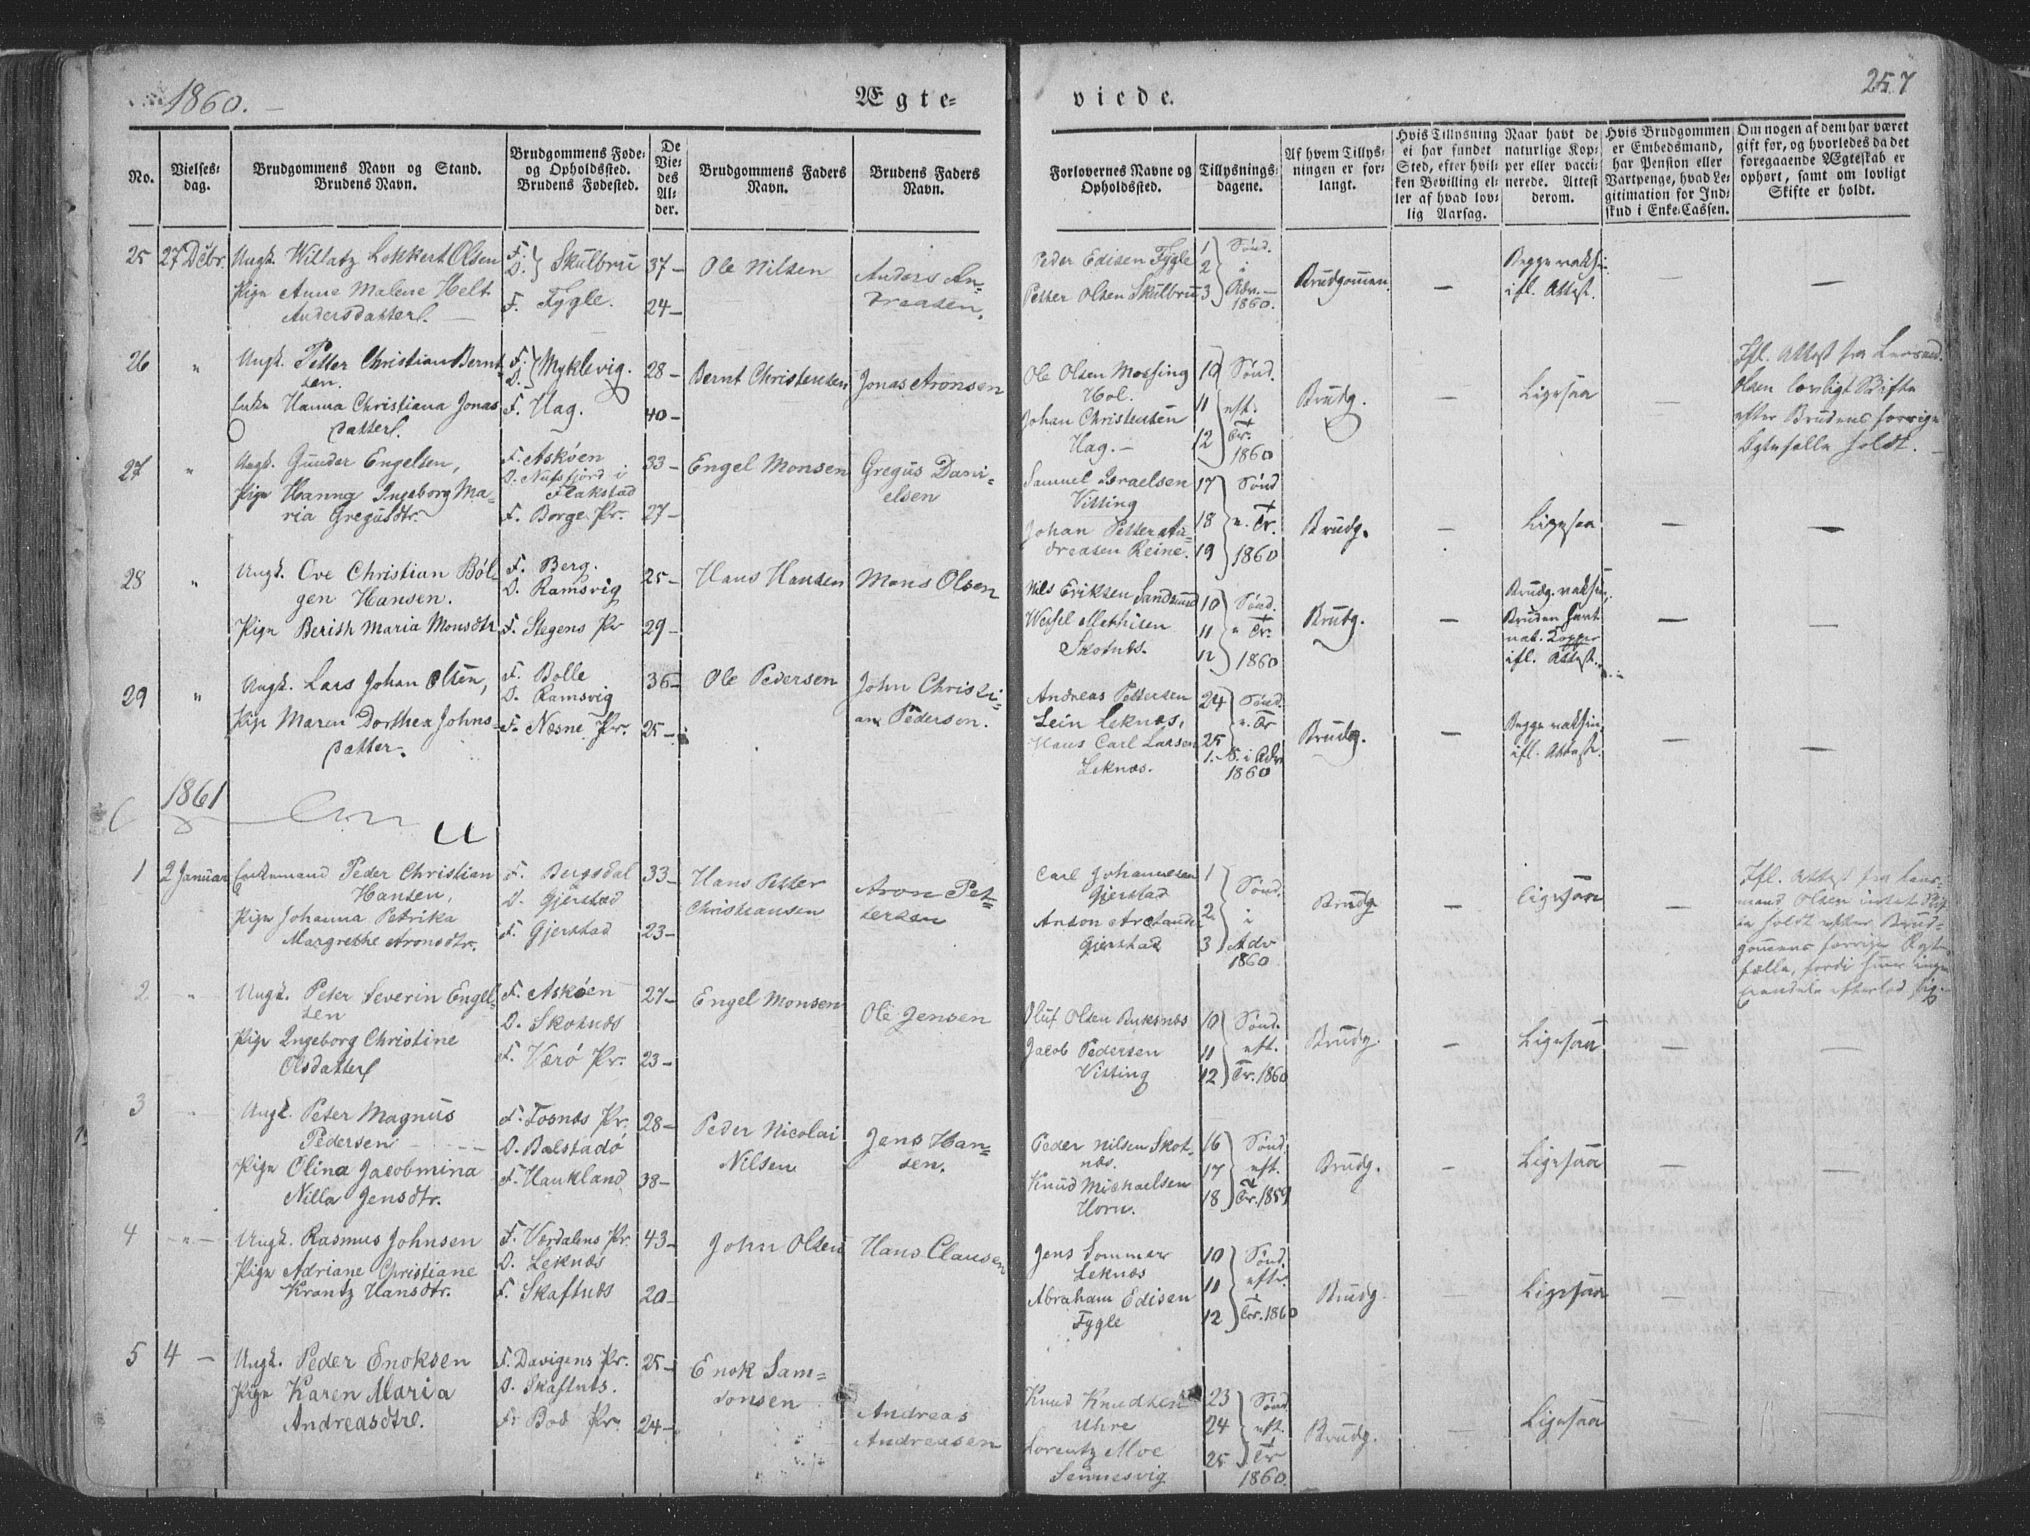 1860.
Ægte-
viede.
257
No.
Vielses-
dag.
Brudgommens Navn og Stand.
Brudens Navn.
Brudgommens Føde-
og Opholdssted.
Brudens Fødested.
De
Vie-
des
Al-
der.
Brudgommens Faders
Navn.
Brudens Faders
Navn.
Forlovernes Navne og
Opholdssted.
Tillysnings-
dagene.
Af hvem Tillys-
ningen er for-
langt.
Hvis Tillysning
ei har fundet
Sted, efter hvil-
ken Bevilling el-
ler af hvad lov-
lig Aarsag.
Naar havt de
naturlige Kop-
per eller vacci-
nerede. Attest
derom.
Hvis Brudgommen
er Embedsmand,
har Pension eller
Vartpenge, hvad Le-
gitimation for Ind-
skud i Enke-Cassen.
Om nogen af dem har været
gift for, og hvorledes da det
foregaaende Ægteskab er
ophørt, samt om lovligt
Skifte er holdt.
25 27 Dcbr.
Ungk. Willatz Lokkert Olsen
Pige Anne Malene Helt
Andersdatter
F. D. } Skulbru
F. Fygle.
37 –
24 –
Ole Nilsen
Anders An-
dreasen.
Peder Edisen Fygle
Petter Olsen Skulbru
1 2 3 } Sønd.
i
Adv. –
1860.
Brudgommen.
–
Begge vaksin.
ifl. Attest.
–
–
26 "
Ungk. Petter Christian Bernt-
sen.
Enke Hanna Christiana Jonas
datter.
F. D. } Myklevig.
F. Hag.
28 –
40 –
Bernt Christensen
Jonas Aronsen
Ole Olsen Mossing
Hol.
Johan Christensen
Hag. –
10 11 12 } Sønd.
eft.
Tr.
1860
Brudg.
–
Ligesaa
–
Ifl. Attest fra Lensmd.
Olsen lovligt Skifte
efter Brudens forrige
Ægtefælle holdt. –
27 "
Ungk. Gunder Engelsen,
Pige Hanna Ingeborg Ma-
ria Gregusdtr.
F. Askøen
D. Nufsfjord i
Flakstad
F. Borge Pr.
33 –
27 –
Engel Monsen
Gregus Dani-
elsen
Samuel Israelsen
Vitting
Johan Petter An-
dreasen Reine.
17 18 19 } Sønd
e. Tr.
1860
Brudg.
–
Ligesaa.
–
–
28 "
Ungk. Ove Christian Böl-
gen Hansen.
Pige Berith Maria Monsdtr
F. Berg.
D. Ramsvig
F. Stegens Pr
25 –
29 –
Hans Hansen
Mons Olsen
Nils Eriksen Sandsund
Wessel Methisen
Skotnæs.
10 11 12 } Sønd.
e. Tr.
1860
Brudg.
–
Brudg. vaksin,
Bruden havt
nat. Kopper
ifl. Attest.
–
29 "
Ungk. Lars Johan Olsen,
Pige Maren Dorthea Johns-
datter.
F. Bolle
D. Ramsvig
F. Næsne Pr.
36 –
25 –
Ole Pedersen
John Christi-
an Pedersen.
Andreas Pettersen
Lein Leknæs,
Hans Carl Larsen
Leknæs.
24 25 } Sønd.
e. Tr
1. S. i Adv
1860
Brudg.
–
Begge vaksin.
ifl. Attest.
–
–
1861
1 2 Januar
Enkemand Peder Christian
Hansen,
Pige Johanna Petrika
Margrethe Aronsdtr.
F. Bergsdal
D. Gjerstad
F. Gjerstad
33 –
23 –
Hans Petter
Christiansen
Aron Pet-
tersen
Carl Johannesen
Gjerstad
Anton Arctander
Gjerstad
1 2 3 } Sønd.
i
Adv
1860
Brudg
–
Ligesaa
–
Ifl. Attest fra Lens-
mand Olsen intet Skif-
te holdt efter Brud-
gommens forrige Ægte-
fælle, fordi hun ingen
2
Ungk. Peter Severin Engel-
sen
Pige Ingeborg Christine
Olsdatter
F. Askøen
D. Skotnæs
F. Værø Pr.
27 –
23 –
Engel Monsen
Ole Jensen
Oluf Olsen Buksnæs
Jacob Pedersen
Vitting
10 11 12 } Sønd.
eft.
Tr. 1860
Brudg.
–
Ligesaa
–
–
3
Ungk. Peter Magnus
Pedersen
Pige Olina Jacobmina
Nilla Jensdtr.
F. Fosnæs Pr.
D. Balstadö
F. Haukland
28 –
38 –
Peder Nicolai
Nilsen
Jens Han-
sen.
Peder Nilsen Skot-
næs.
Knud Michaelsen
Horn.
16 17 18 } Sønd.
eft.
Tr. 1859
Brudg.
–
Ligesaa
–
–
4 – " –
Ungk. Rasmus Johnsen
Pige Adriane Christiane
Krantz Hansdtr.
F. Værdalens Pr.
D. Leknæs
F. Skaftnæs
43 –
20 –
John Olsen
Hans Clausen
Jens Sommer
Leknæs
Abraham Edisen
Fygle
10 11 12 } Sønd.
eft.
Tr. 1860
Brudg.
–
Ligesaa
–
–
5 4 –
Ungk. Peder Enoksen
Pige Karen Maria
Andreasdtr.
F. Davigens Pr.
D. Skaftnæs.
F. Bod Pr.
25 –
24 –
Enok Sam-
sonsen
Andreas
Andreasen
Knud Knudsen
Uhre
Lorentz Moe
Sennesvig
23 24 25 } Sønd.
eft.
Tr
1860.
Brudg.
–
Ligesaa